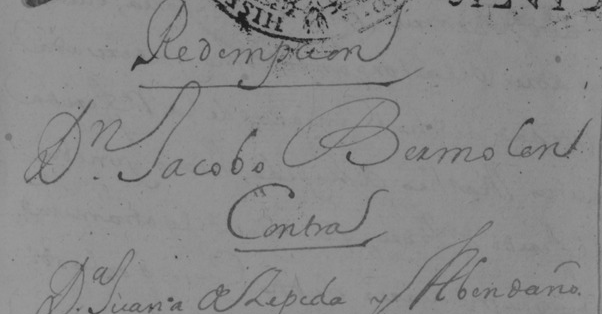 HISP
Redempcion
Dn. Jacobo Bermolen
Contra
Da. Juana de Zepeda y Abendaño.